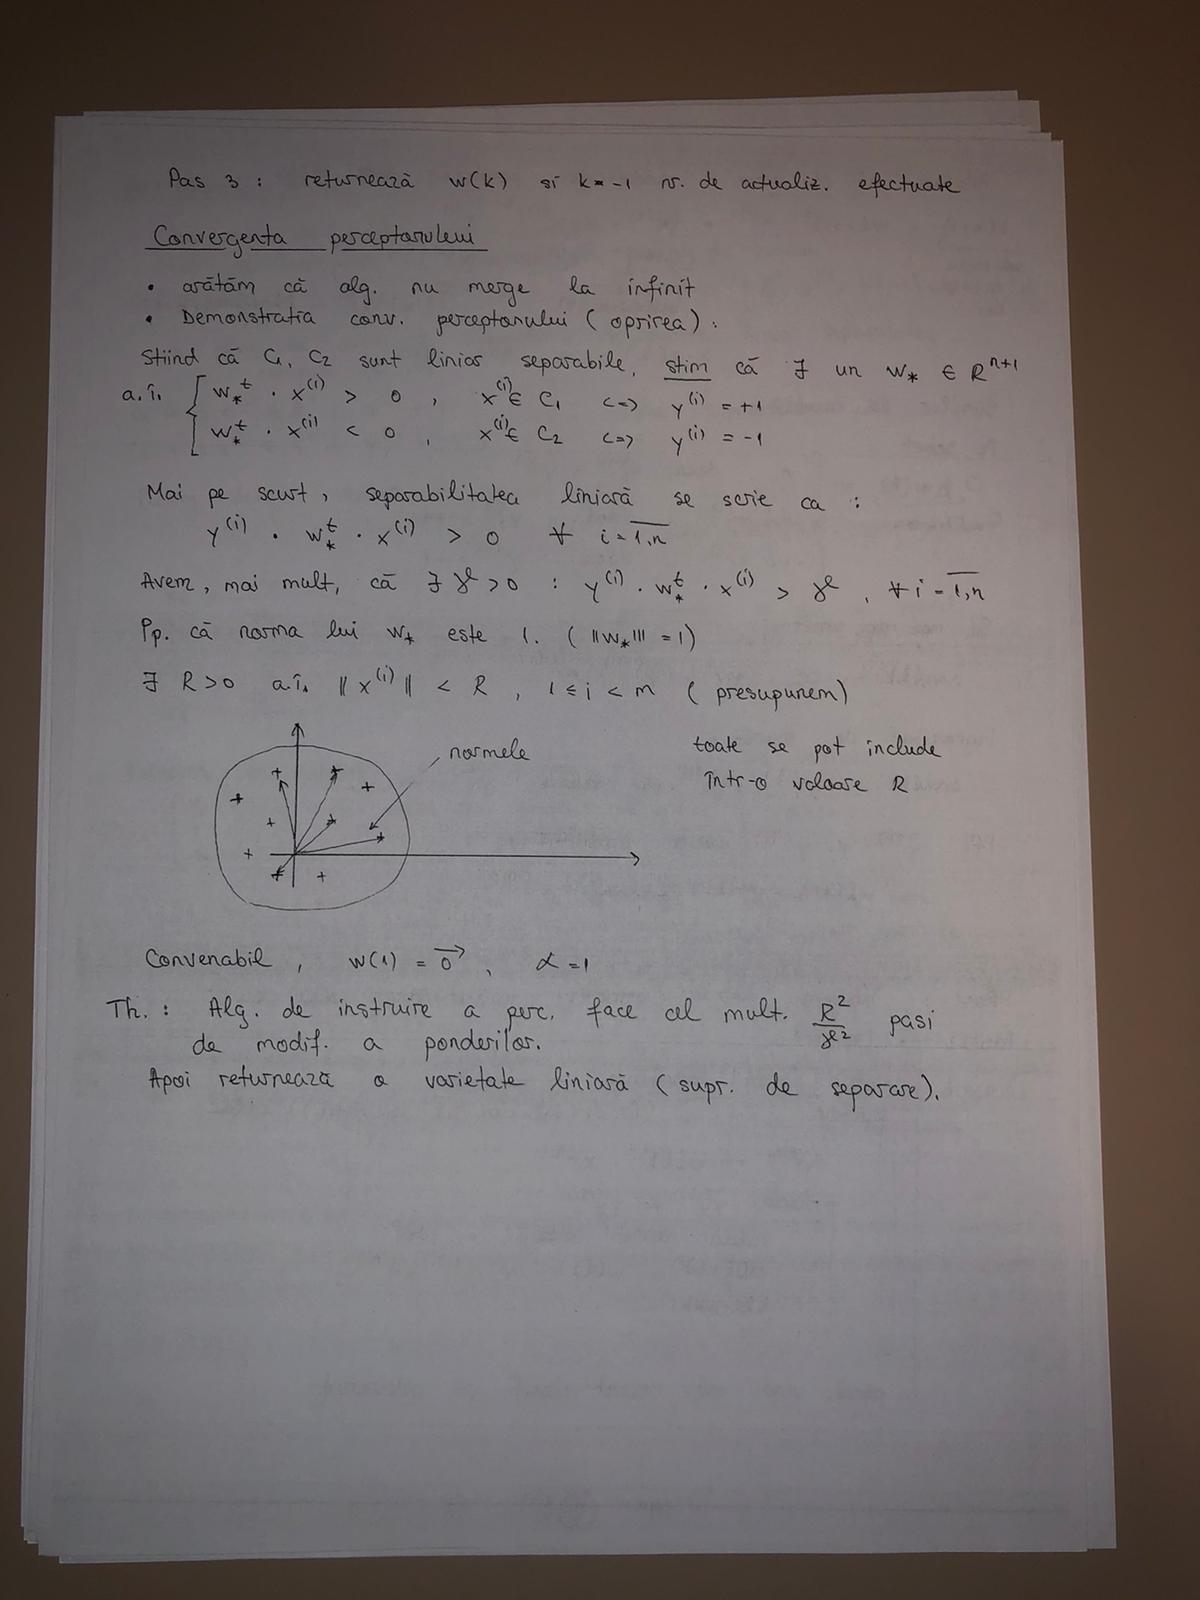 Pas 3 : returnează w(k) si k = -1 nr. de actualiz. efectuate
Convergenta perceptorului
• arătăm că alg. nu merge la infinit
• Demonstratia conv. perceptonului ( oprirea ) :
Stiind că C1, C2 sunt liniar separabile, stim că ∃ un w* ∈ R^(n+1)
a.î. { w*^t · x^(i) > 0 , x^(i) ∈ C1 <=> y^(i) = +1
w*^t · x^(i) < 0 , x^(i) ∈ C2 <=> y^(i) = -1
Mai pe scurt, separabilitatea liniară se scrie ca :
y^(i) · w*^t · x^(i) > 0 ∀ i = 1,n
Avem, mai mult, că ∃ γ > 0 : y^(i) · w*^t · x^(i) > γ , ∀ i = 1,n
Pp. că norma lui w* este 1. ( ||w*|| = 1 )
∃ R > 0 a.î. || x^(i) || < R , 1 ≤ i < m ( presupunem )
normele
toate se pot include
într-o valoare R
Convenabil , w(1) = 0⃗ , α = 1
Th. : Alg. de instruire a perc. face cel mult. R²/γ² pasi
de modif. a ponderilor.
Apoi returnează o varietate liniară ( supr. de separare ).